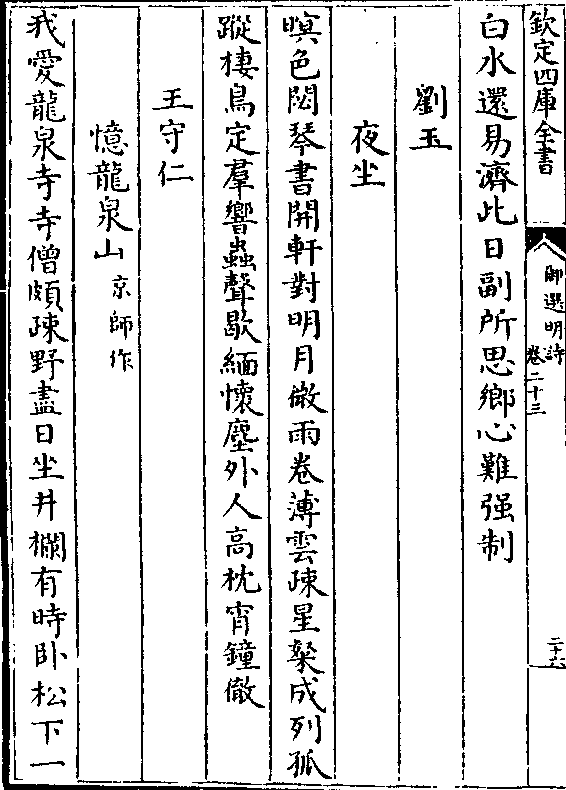 欽定四庫全書
御選明詩
卷二十三
二十六
白水還易濟此日副所思鄉心難强制
劉玉
夜坐
暝色閟琴書開軒對明月微雨卷薄雲疎星粲成列孤
蹤棲鳥定羣響蟲聲歇緬懷塵外人高枕宵鐘徹
王守仁
憶龍泉山京師作
我愛龍泉寺寺僧頗疎野盡日坐井欄有時卧松下一